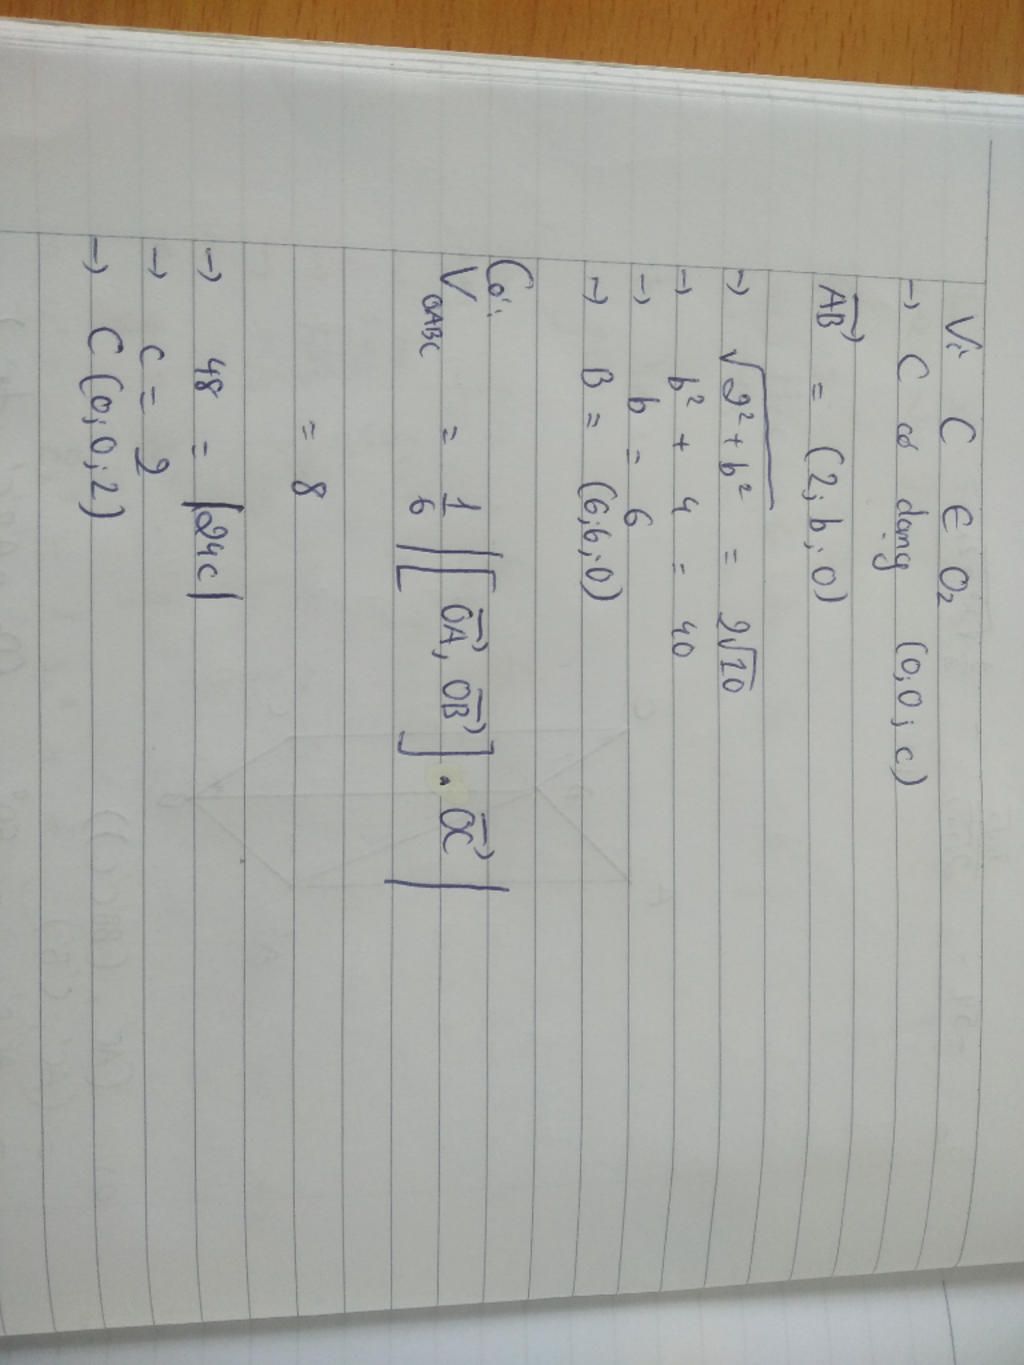 Vì C ∈ O2
→ C có dạng (0; 0; c)
AB→ = (2; b; 0)
→ √(2² + b²) = 2√10
→ b² + 4 = 40
→ b = 6
→ B = (6; 6; 0)
Có:
V OABC = 1/6 |[OA→, OB→] . OC→|
= 8
→ 48 = |24c|
→ c = 2
→ C (0; 0; 2)